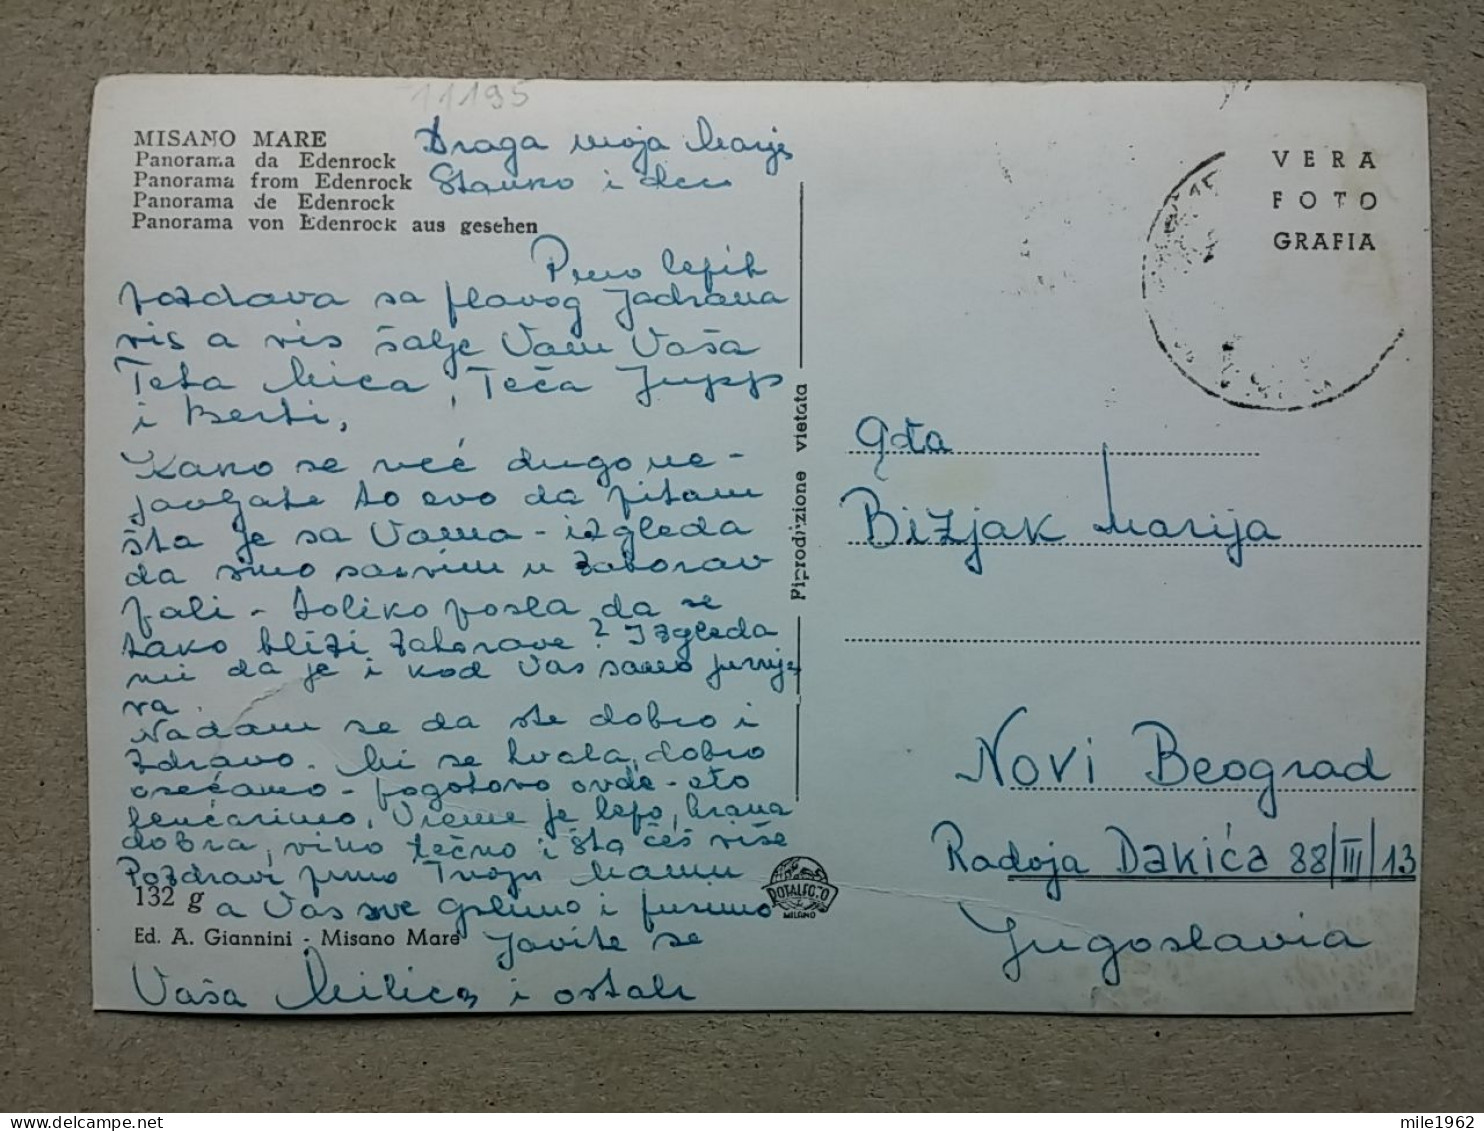 11195
MISANO MARE
Panorama da Edenrock
Panorama from Edenrock
Panorama de Edenrock
Panorama von Edenrock aus gesehen
Draga moja Marijo
Stanko i deco
Puno lepih
pozdrava sa plavog Jadrana
vis a vis šalje Vam Vaša
Teta Mica, Teča Jupp
i Berti,
Kako se već dugo ne-
javljate to evo da pitam
šta je sa Vama - izgleda
da smo sasvim u zaborav
pali - toliko posla da se
tako bliži zaborave? Izgleda
mi da je i kod Vas samo jurnja-
va
Nadam se da ste dobro i
zdravo. Mi se hvala, dobro
osećamo - pogotovo ovde - što
fenćarimo. Vreme je lepo, hrana
dobra, vino tečno i šta ćeš više
Pozdravi puno Tvoju Mamu
a Vas sve grlimo i pusimo
Javite se
Vaša Milica i ostali
132 g
Ed. A. Giannini - Misano Mare
Riproduzione vietata
ROTALFOTO
MILANO
VERA
FOTO
GRAFIA
Gđa
Bizjak Marija
Novi Beograd
Radoja Dakića 88/III/13
Jugoslavia
mile1962